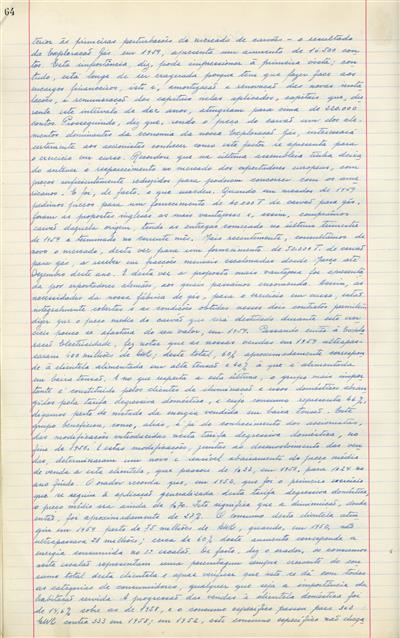 64
terior às primeiras perturbações do mercado de carvão - o resultado
da Exploração Gás em 1959, apresenta um aumento de 16.500 con-
tos. Esta importância, diz, pode impressionar à primeira vista; con-
tudo, está longe de ser exagerada porque tem que fazer face aos
encargos financeiros, isto é, amortização e renovação das novas insta-
lações, e remuneração dos capitais nelas aplicados, capitais que, du-
rante este intervalo de dez anos, atingiram para cima de 220.000
contos. Prosseguindo, diz que, sendo o preço do carvão um dos ele-
mentos dominantes da economia da nossa Exploração Gás, interessará
certamente aos accionistas conhecer como este factor se apresenta para
o exercício em curso. Recordou que na última assembleia tinha deixa-
do antever o reaparecimento no mercado dos exportadores europeus, com
preços suficientemente reduzidos para poderem concorrer com os ame-
ricanos. E foi, de facto, o que sucedeu. Quando em meados de 1959
pedimos preços para um fornecimento de 40.000 T. de carvão para gás,
foram as propostas inglesas as mais vantajosas e, assim, comprámos
carvão daquela origem, tendo as entregas começado no último trimestre
de 1959 e terminado no corrente mês. Mais recentemente, consultámos de
novo o mercado, desta vez para um fornecimento de 50.000 T. de carvão
para gás, a receber em fracções mensais escalonadas desde Março até
Dezembro deste ano. E desta vez a proposta mais vantajosa foi apresenta-
da por exportadores alemães, aos quais passámos encomenda. Assim, as
necessidades da nossa fábrica de gás, para o exercício em curso, estão
integralmente cobertas e as condições obtidas nesses dois contratos permitem
dizer que o preço médio do carvão que será destilado durante este exer-
cício pouco se afastará do seu valor, em 1959. Passando então à Explo-
ração Electricidade, fez notar que as nossas vendas em 1959 ultrapas-
saram 400 milhões de kWh; deste total, 60% aproximadamente correspon-
de à clientela alimentada em alta tensão e 40% à que é alimentada
em baixa tensão. No que respeita a esta última, o grupo mais impor-
tante é constituído pelos clientes da iluminação e usos domésticos abran-
gidos pela tarifa degressiva doméstica, e cujo consumo representa 46%,
digamos perto de metade da energia vendida em baixa tensão. Este
grupo beneficiou, como, aliás, é já do conhecimento dos accionistas,
das modificações introduzidas nesta tarifa degressiva doméstica, no
fim de 1958. E estas modificações, juntas ao desenvolvimento das ven-
das, determinaram um novo e sensível abaixamento do preço médio
de venda a esta clientela, que passou de 1$33, em 1958, para 1$24 no
ano findo. O orador recorda que, em 1950, que foi o primeiro exercício
que se seguiu à aplicação generalizada desta tarifa degressiva doméstica,
o preço médio era ainda de Isto significa que a diminuição, desde
então, foi aproximadamente de O consumo desta clientela atin-
giu em 1959 perto de 75 milhões de kWh, quando, em 1950, não
ultrapassava 28 milhões; cerca de 60% deste aumento corresponde a
energia consumida no 3º escalão. De facto, diz o orador, os consumos
neste escalão representam uma percentagem sempre crescente do con-
sumo total desta clientela e apraz verificar que isto se dá com todas
as categorias de consumidores, qualquer que seja a importância da
habitação servida. A progressão das vendas à clientela doméstica foi
de 14,6% sobre as de 1958, e o consumo específico passou para 363
kWh contra 333 em 1958; em 1952, este consumo específico não chega-